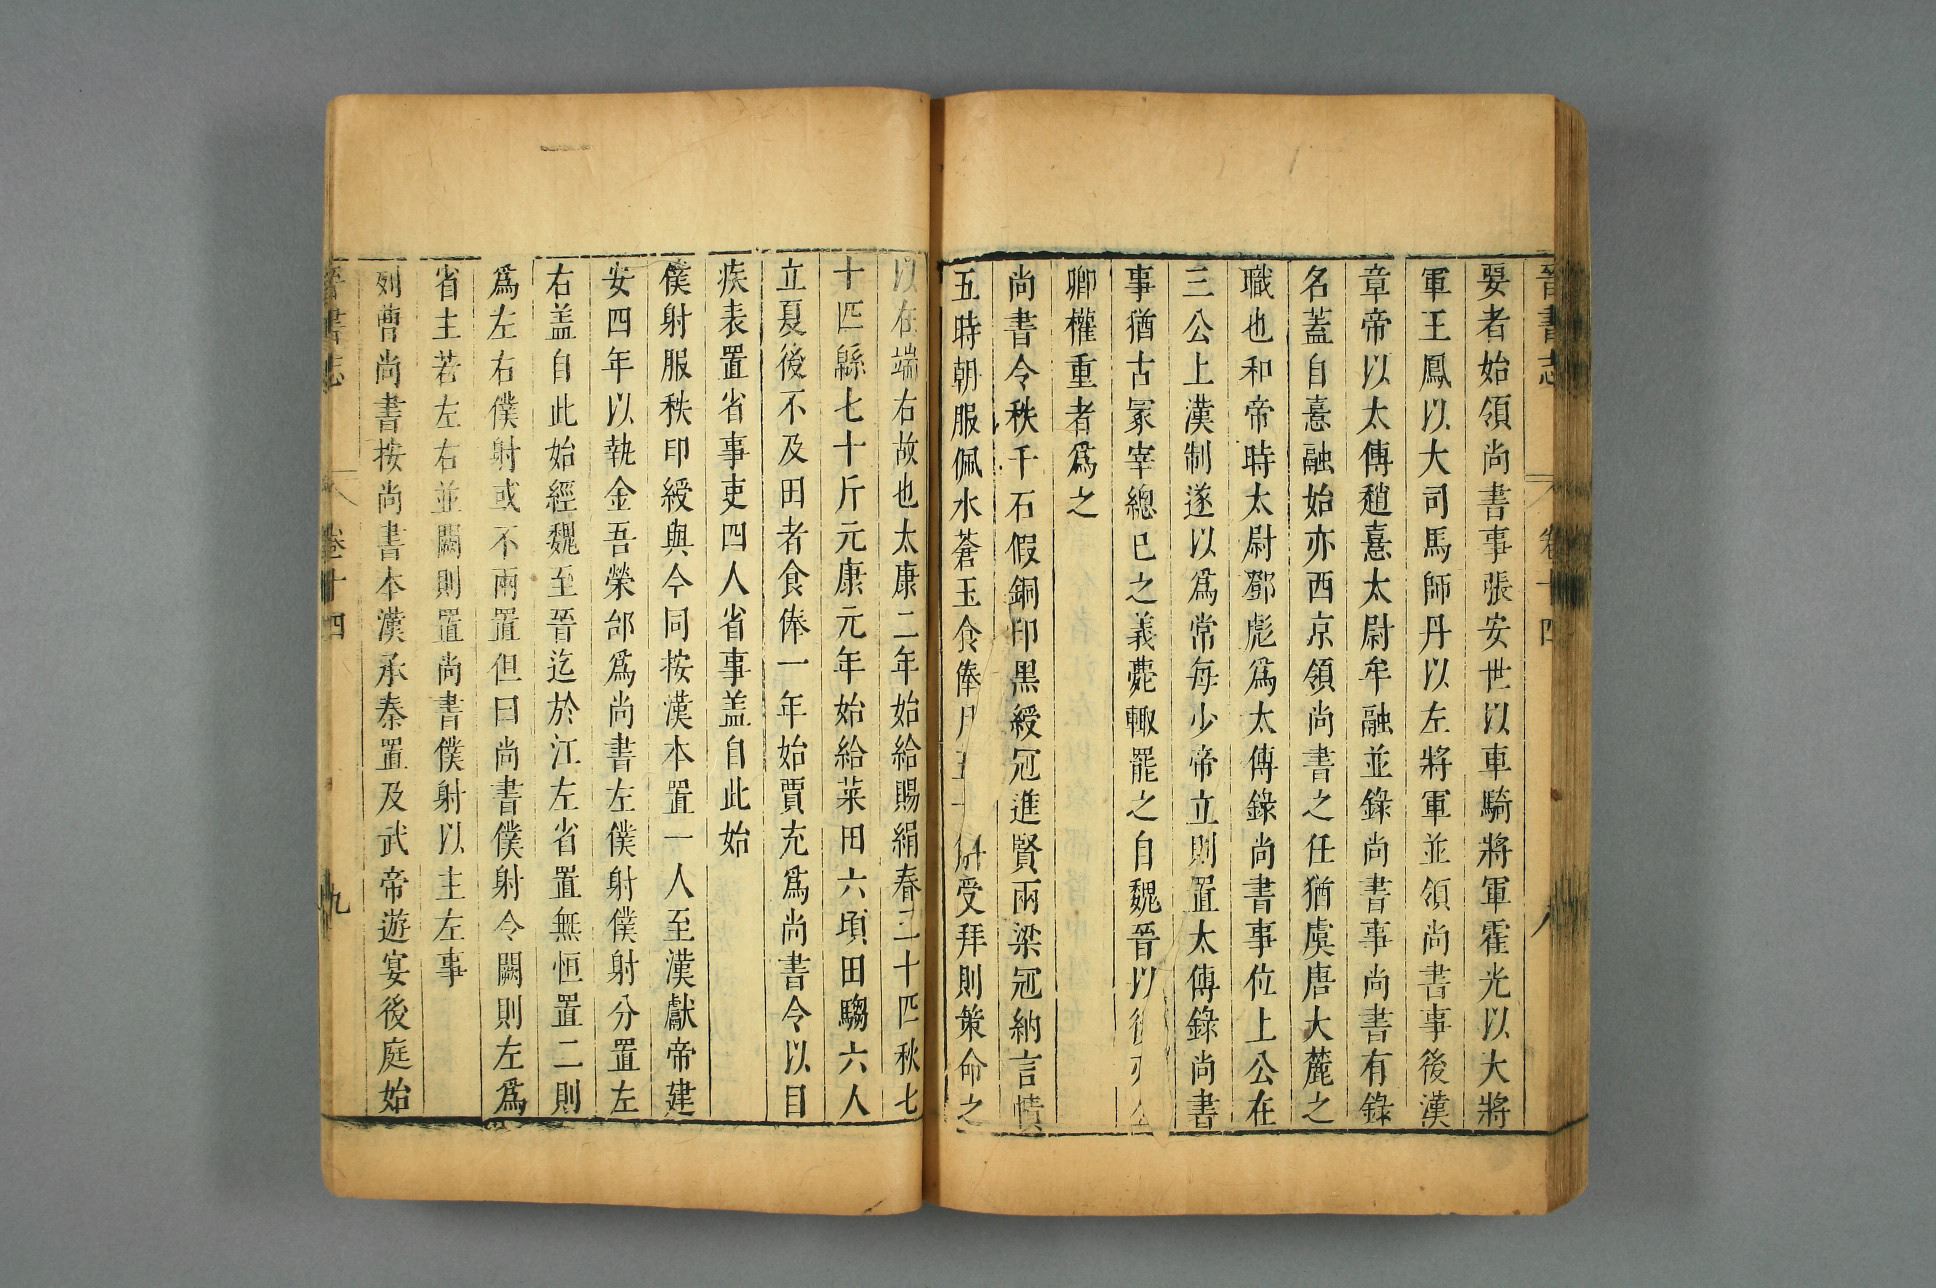 晉書志 卷十四 八
要者始領尚書事張安世以車騎將軍霍光以大將
軍王鳳以大司馬師丹以左將軍並領尚書事後漢
章帝以太傅趙憙太尉牟融並錄尚書事尚書有錄
名蓋自憙融始亦西京領尚書之任猶虞唐大麓之
職也和帝時太尉鄧彪爲太傅錄尚書事位上公在
三公上漢制遂以爲常每少帝立則置太傅錄尚書
事猶古冢宰總已之義薨輙罷之自魏晉以後亦公
卿權重者爲之
尚書令秩千石假銅印墨綬冠進賢兩梁冠納言幘
五時朝服佩水蒼玉食俸月五十斛受拜則策命之
以在端右故也太康二年始給賜絹春三十匹秋七
十匹緜七十斤元康元年始給菜田六頃田騶六人
立夏後不及田者食俸一年始賈充爲尚書令以目
疾表置省事吏四人省事盖自此始
僕射服秩印綬與令同按漢本置一人至漢獻帝建
安四年以執金吾榮郃爲尚書左僕射僕射分置左
右盖自此始經魏至晉迄於江左省置無恒置二則
爲左右僕射或不兩置但曰尚書僕射令闕則左爲
省主若左右並闕則置尚書僕射以主左事
列曹尚書按尚書本漢承秦置及武帝遊宴後庭始
晉書志 卷十四 九